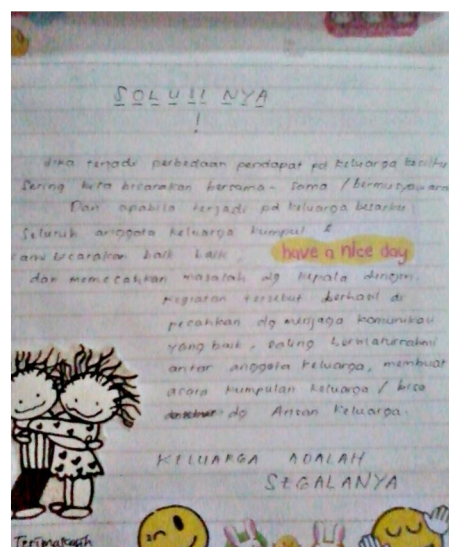 SOLUSI NYA
!
Jika terjadi perbedaan pendapat pd keluarga kecilku
Sering kita bicarakan bersama-sama / bermusyawara
Dan apabila terjadi pd keluarga besarku
Seluruh anggota keluarga kumpul &
ami bicarakan baik baik.
have a nice day
dan memecahkan masalah dg kepala dingin.
Kegiatan tersebut berhasil di
pecahkan dg menjaga komunikasi
yang baik, saling bersilaturahmi
antar anggota keluarga, membuat
acara kumpulan keluarga / bisa
dg Arisan keluarga.
KELUARGA ADALAH
SEGALANYA
Terimakasih